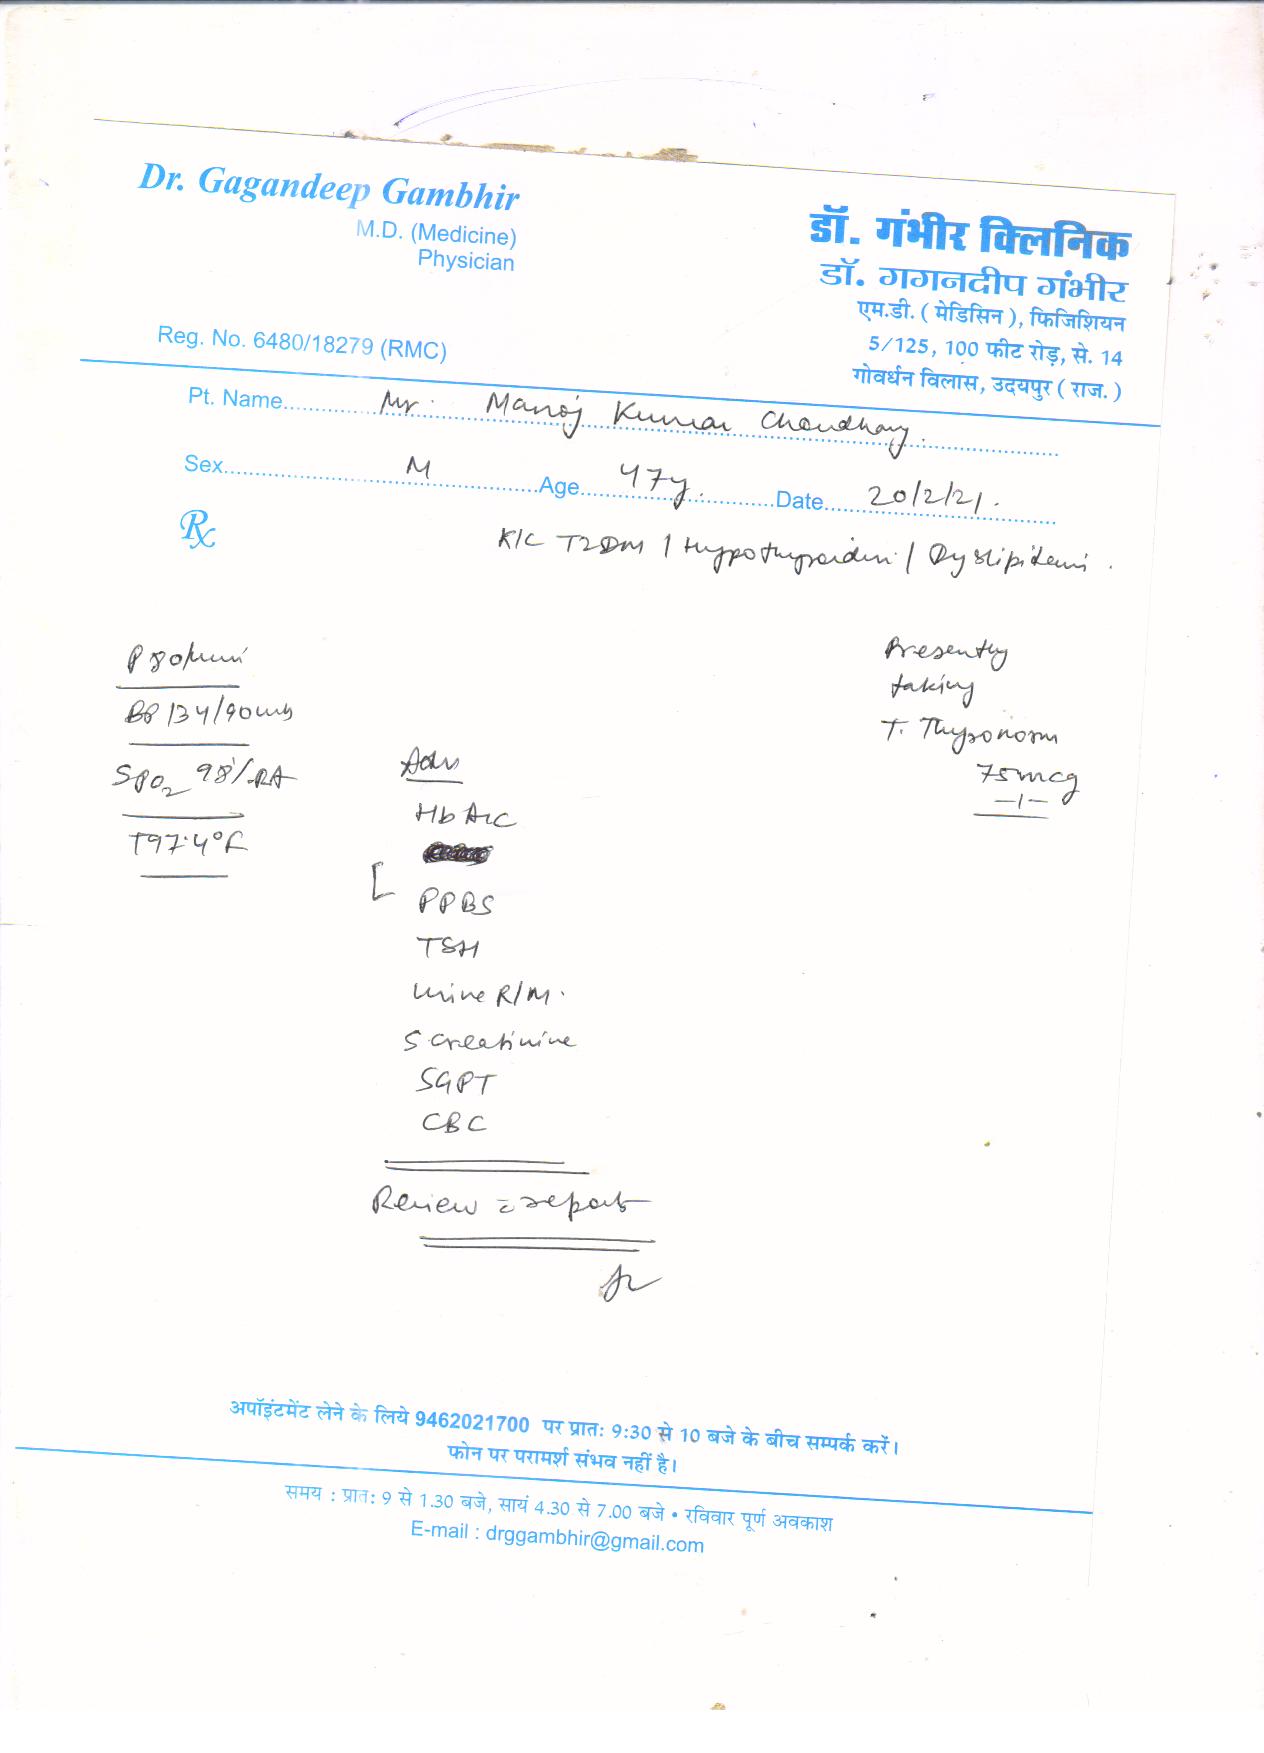 Dr. Gagandeep Gambhir
M.D. (Medicine)
Physician
Reg. No. 6480/18279 (RMC)
डॉ. गंभीर क्लिनिक
डॉ. गगनदीप गंभीर
एम.डी. ( मेडिसिन ), फिजिशियन
5/125, 100 फीट रोड़, से. 14
गोवर्धन विलास, उदयपुर ( राज. )
Pt. Name Mr. Manoj Kumar Choudhary.
Sex M Age 47y. Date 20/2/21.
Rx
K/C T2DM / Hypothyroidism / Dyslipidemi.
P 80/min
BP 134/90
SPO2 98% RA
T 97.4°F
Presently
taking
T. Thyronorm
75mcg
—1—
Adv
HbA1C
PPBS
TSH
Urine R/M.
S creatinine
SGPT
CBC
Review = reports
अपॉइंटमेंट लेने के लिये 9462021700 पर प्रातः 9:30 से 10 बजे के बीच सम्पर्क करें।
फोन पर परामर्श संभव नहीं है।
समय : प्रातः 9 से 1.30 बजे, सायं 4.30 से 7.00 बजे • रविवार पूर्ण अवकाश
E-mail : drggambhir@gmail.com